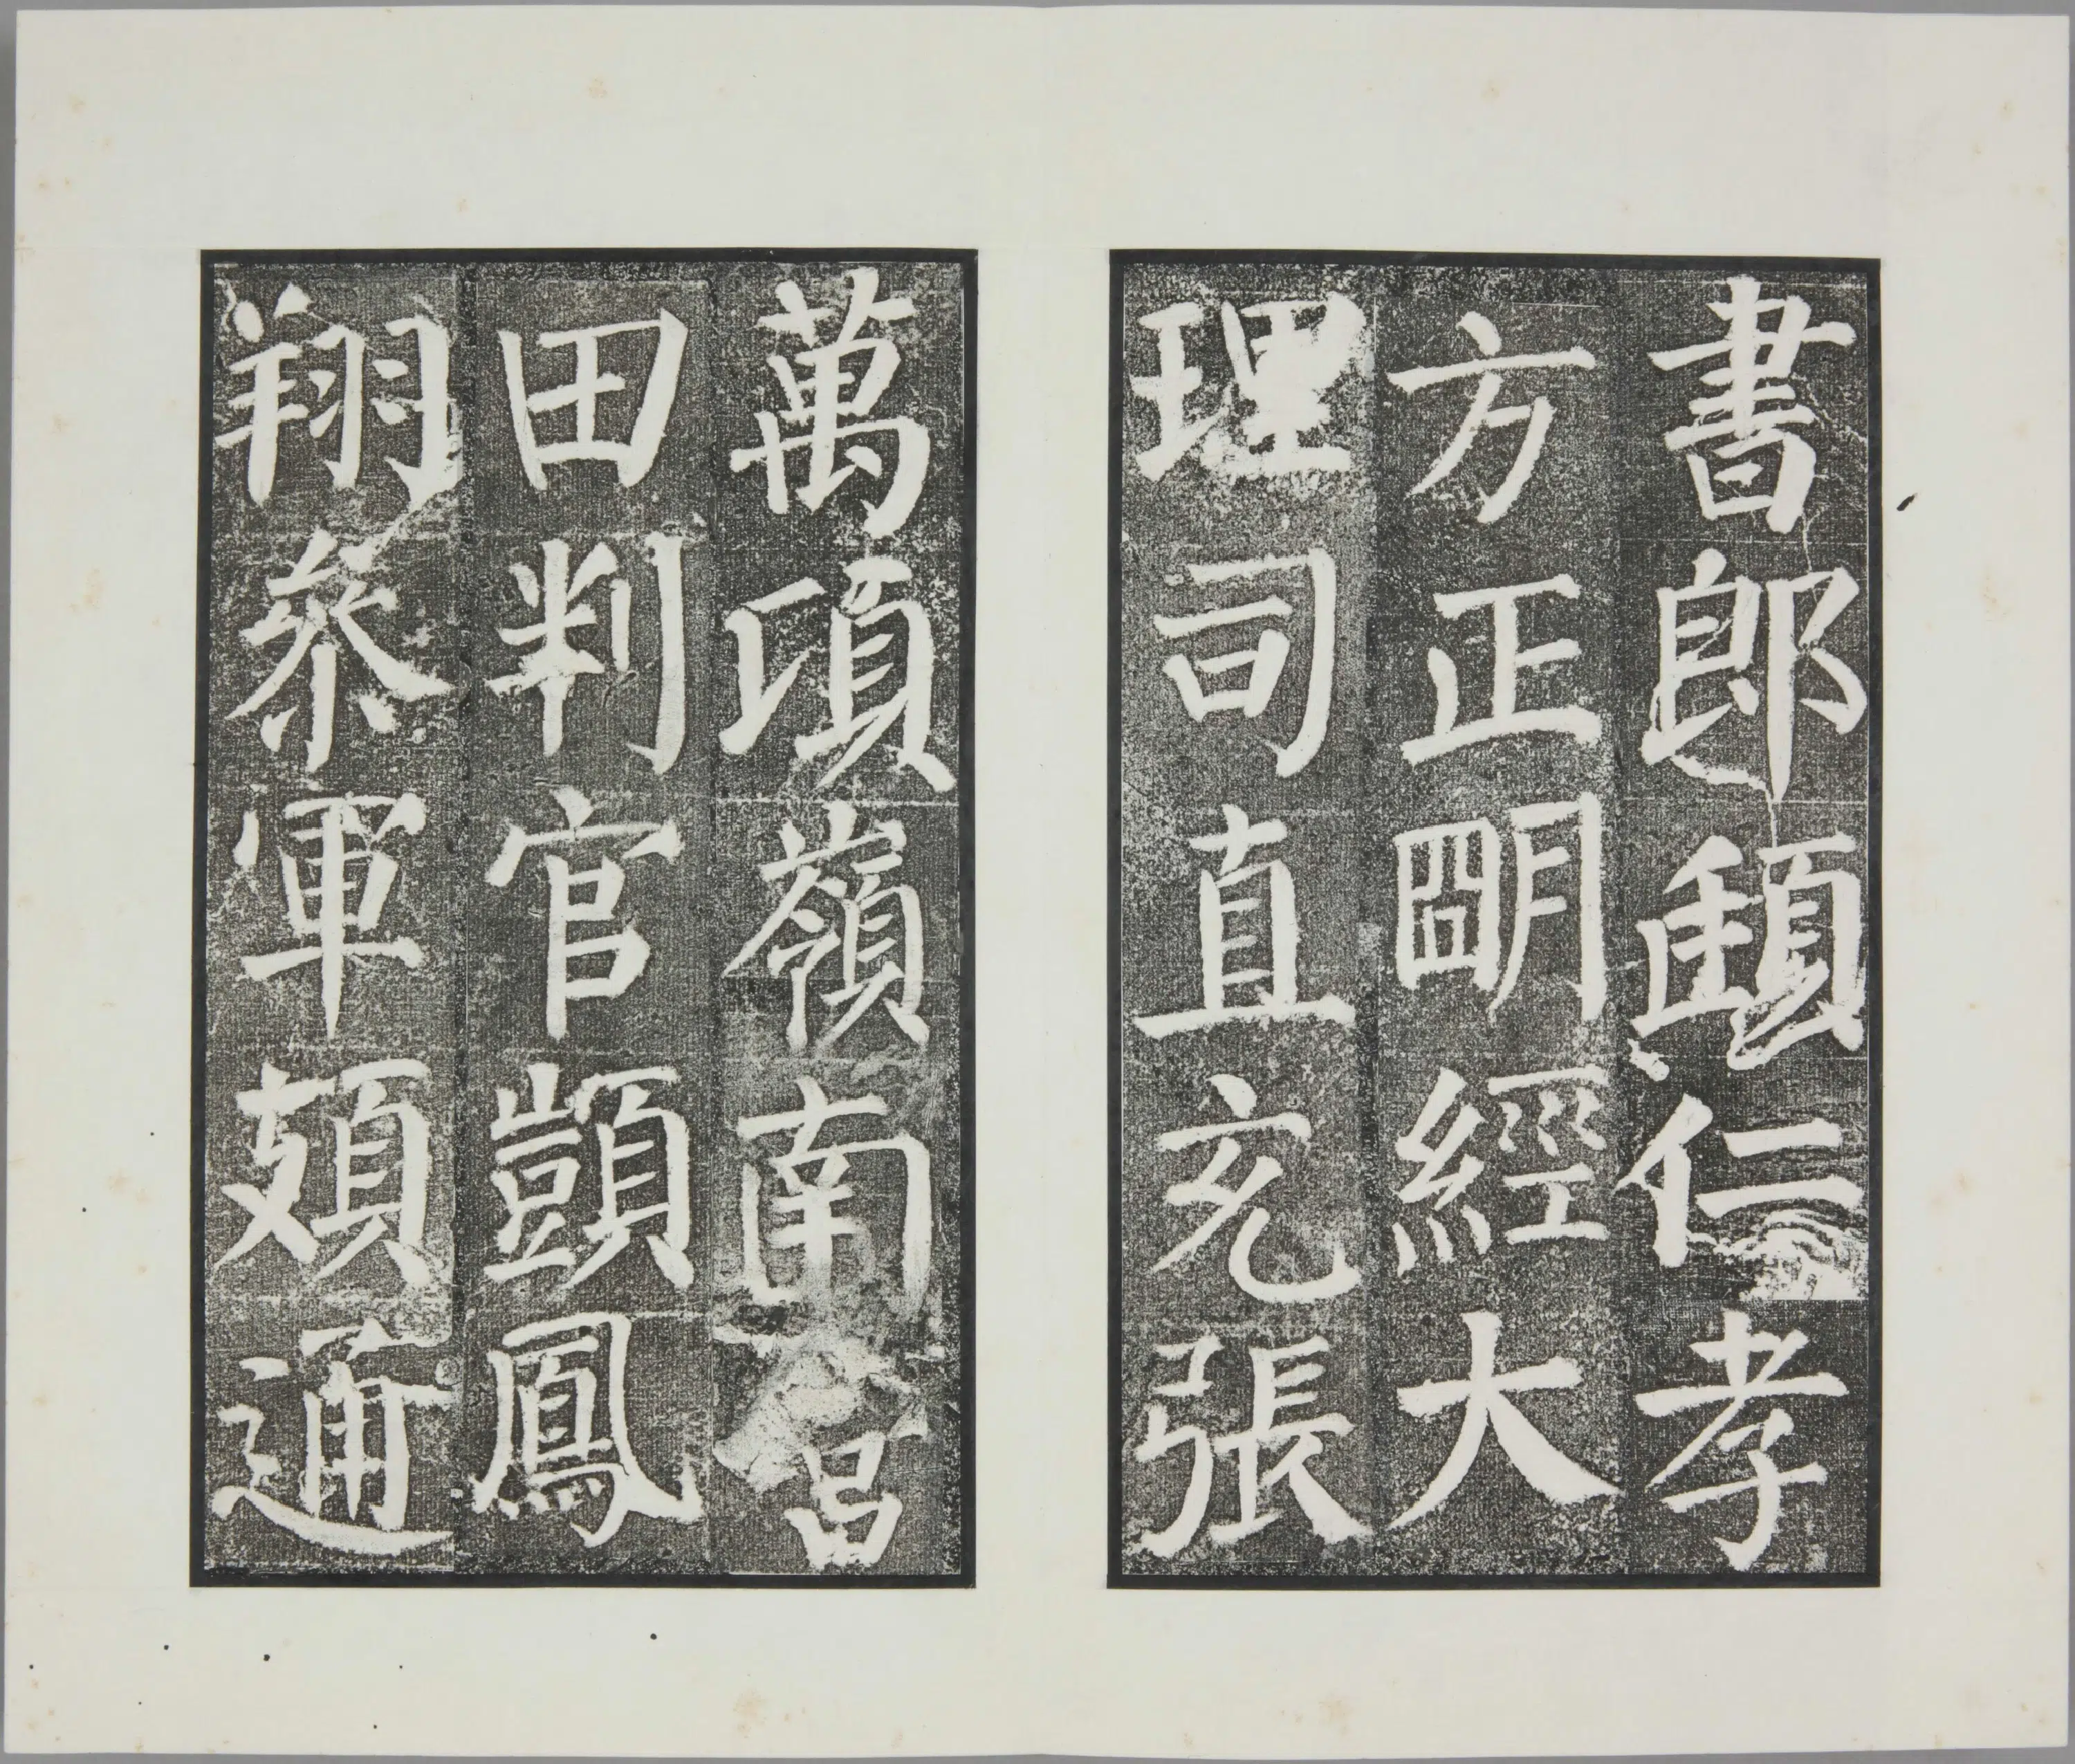 書郎頲仁孝
方正朙經大
理司直充張
萬頃嶺南營
田判官顗鳳
翔參軍頍通